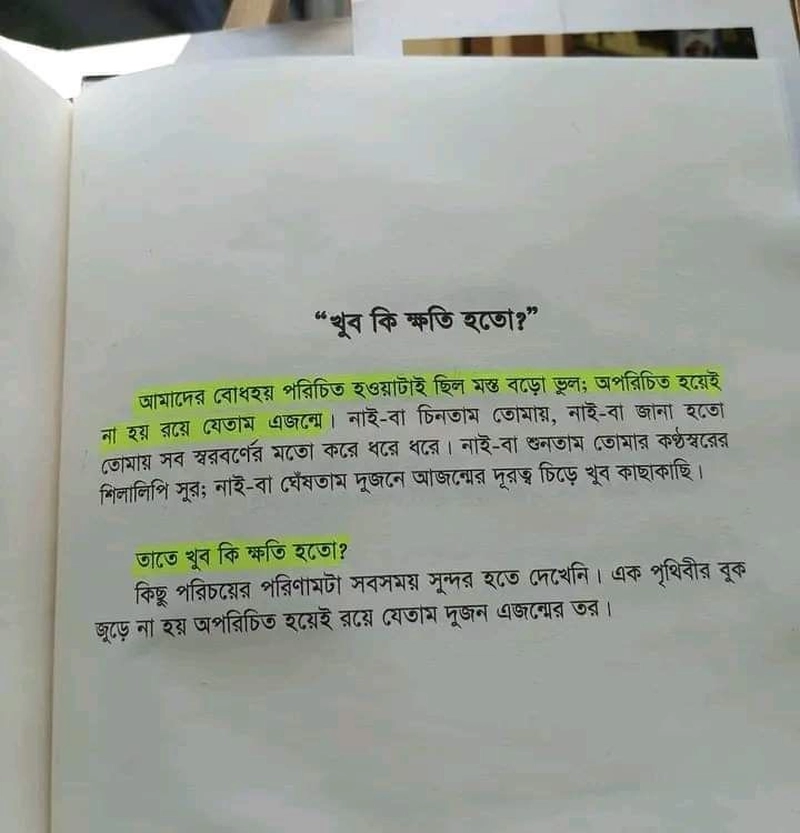 “খুব কি ক্ষতি হতো?”
আমাদের বোধহয় পরিচিত হওয়াটাই ছিল মস্ত বড়ো ভুল; অপরিচিত হয়েই
না হয় রয়ে যেতাম এজন্মে। নাই-বা চিনতাম তোমায়, নাই-বা জানা হতো
তোমায় সব স্বরবর্ণের মতো করে ধরে ধরে। নাই-বা শুনতাম তোমার কণ্ঠস্বরের
শিলালিপি সুর; নাই-বা ঘেঁষতাম দুজনে আজন্মের দূরত্ব চিড়ে খুব কাছাকাছি।
তাতে খুব কি ক্ষতি হতো?
কিছু পরিচয়ের পরিণামটা সবসময় সুন্দর হতে দেখেনি। এক পৃথিবীর বুক
জুড়ে না হয় অপরিচিত হয়েই রয়ে যেতাম দুজন এজন্মের তর।